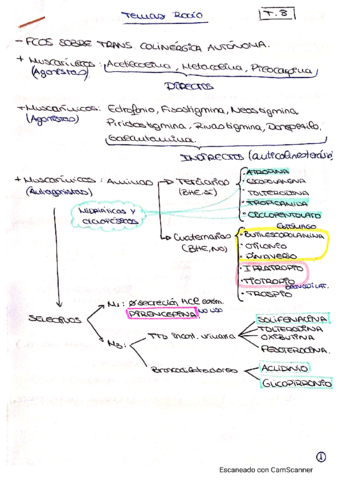 TEMAS ROCÍO
T. 8
- FCOS SOBRE TRANS COLINÉRGICA AUTÓNOMA.
+ Muscarínicos: Acetilcolina, Metacolina, Pilocarpina
(Agonistas)
DIRECTOS
+ Muscarínicos: Edrofonio, Fisostigmina, Neostigmina,
(Agonistas) Piridostigmina, Rivastigmina, Donepezilo,
Galantamina.
INDIRECTOS
+ Muscarínicos: Aminas → Terciarias
(Antagonistas) (BHE, SÍ)
· ATROPINA
· ESCOPOLAMINA
· TOLTERODINA
· TROPICAMIDA
· CICLOPENTOLATO
MIDRIÁTICOS Y
CICLOPLÉJICOS
→ Cuaternarias
(BHE, NO)
· BUTILESCOPOLAMINA
· OTILONIO
· PINAVERIO
· IPRATROPIO
· TIOTROPIO
· TROSPIO
SELECTIVOS
M1: secreción HCl
PIRENCEPINA NO USO
M3:
Tto Incont. urinaria
SOLIFENACINA
TOLTERODINA
OXIBUTINA
FESOTERODINA.
Broncodilatadores
ACLIDINIO
GLICOPIRRONIO
1
Escaneado con CamScanner